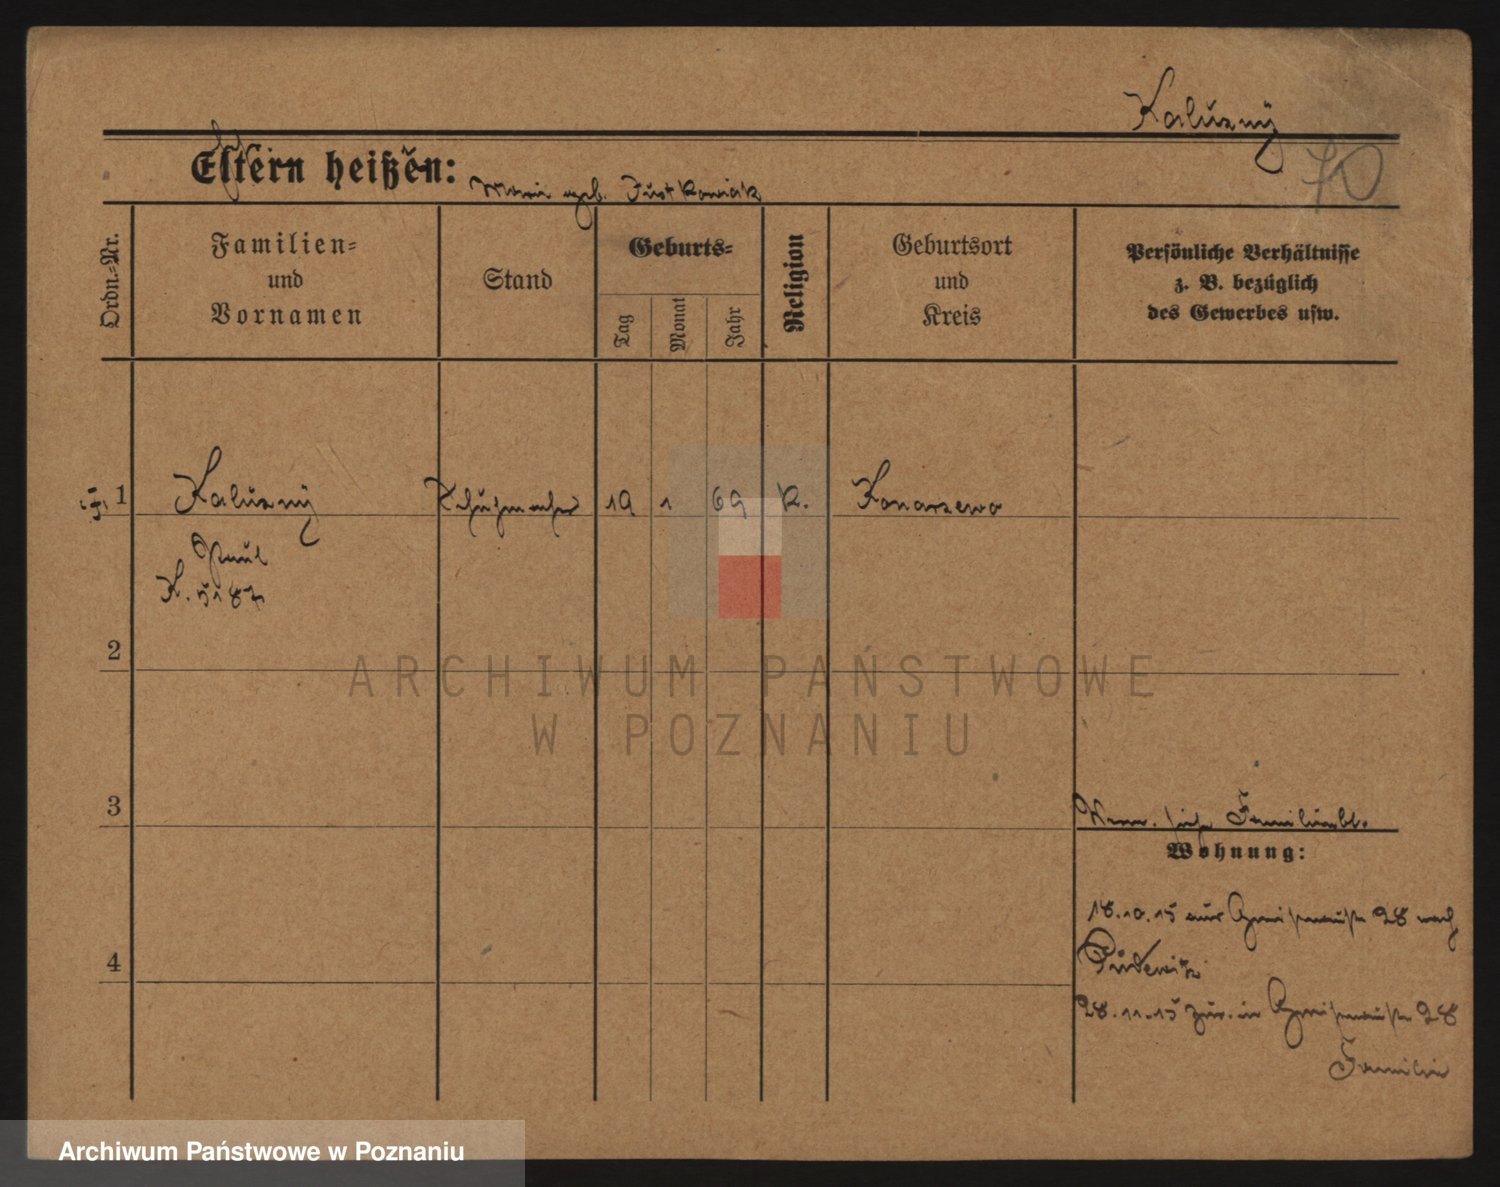 Kaluzny
70
Eltern heißen:
Marie geb. Justkowiak
Ordn.-Nr.
Familien-
und
Vornamen
Stand
Geburts-
Tag
Monat
Jahr
Religion
Geburtsort
und
Kreis
Persönliche Verhältnisse
z. B. bezüglich
des Gewerbes usw.
1 Kaluzny Schuhmacher 19 1 69 K. Konarzewo
Paul
K. 5187
2
3
siehe Familienbl.
Wohnung:
18.10.15 aus Gneisenaustr 28 nach
Pudewitz
4
28.11.15 zur. in Gneisenaustr 28
Familie
ARCHIWUM PAŃSTWOWE
W POZNANIU
Archiwum Państwowe w Poznaniu